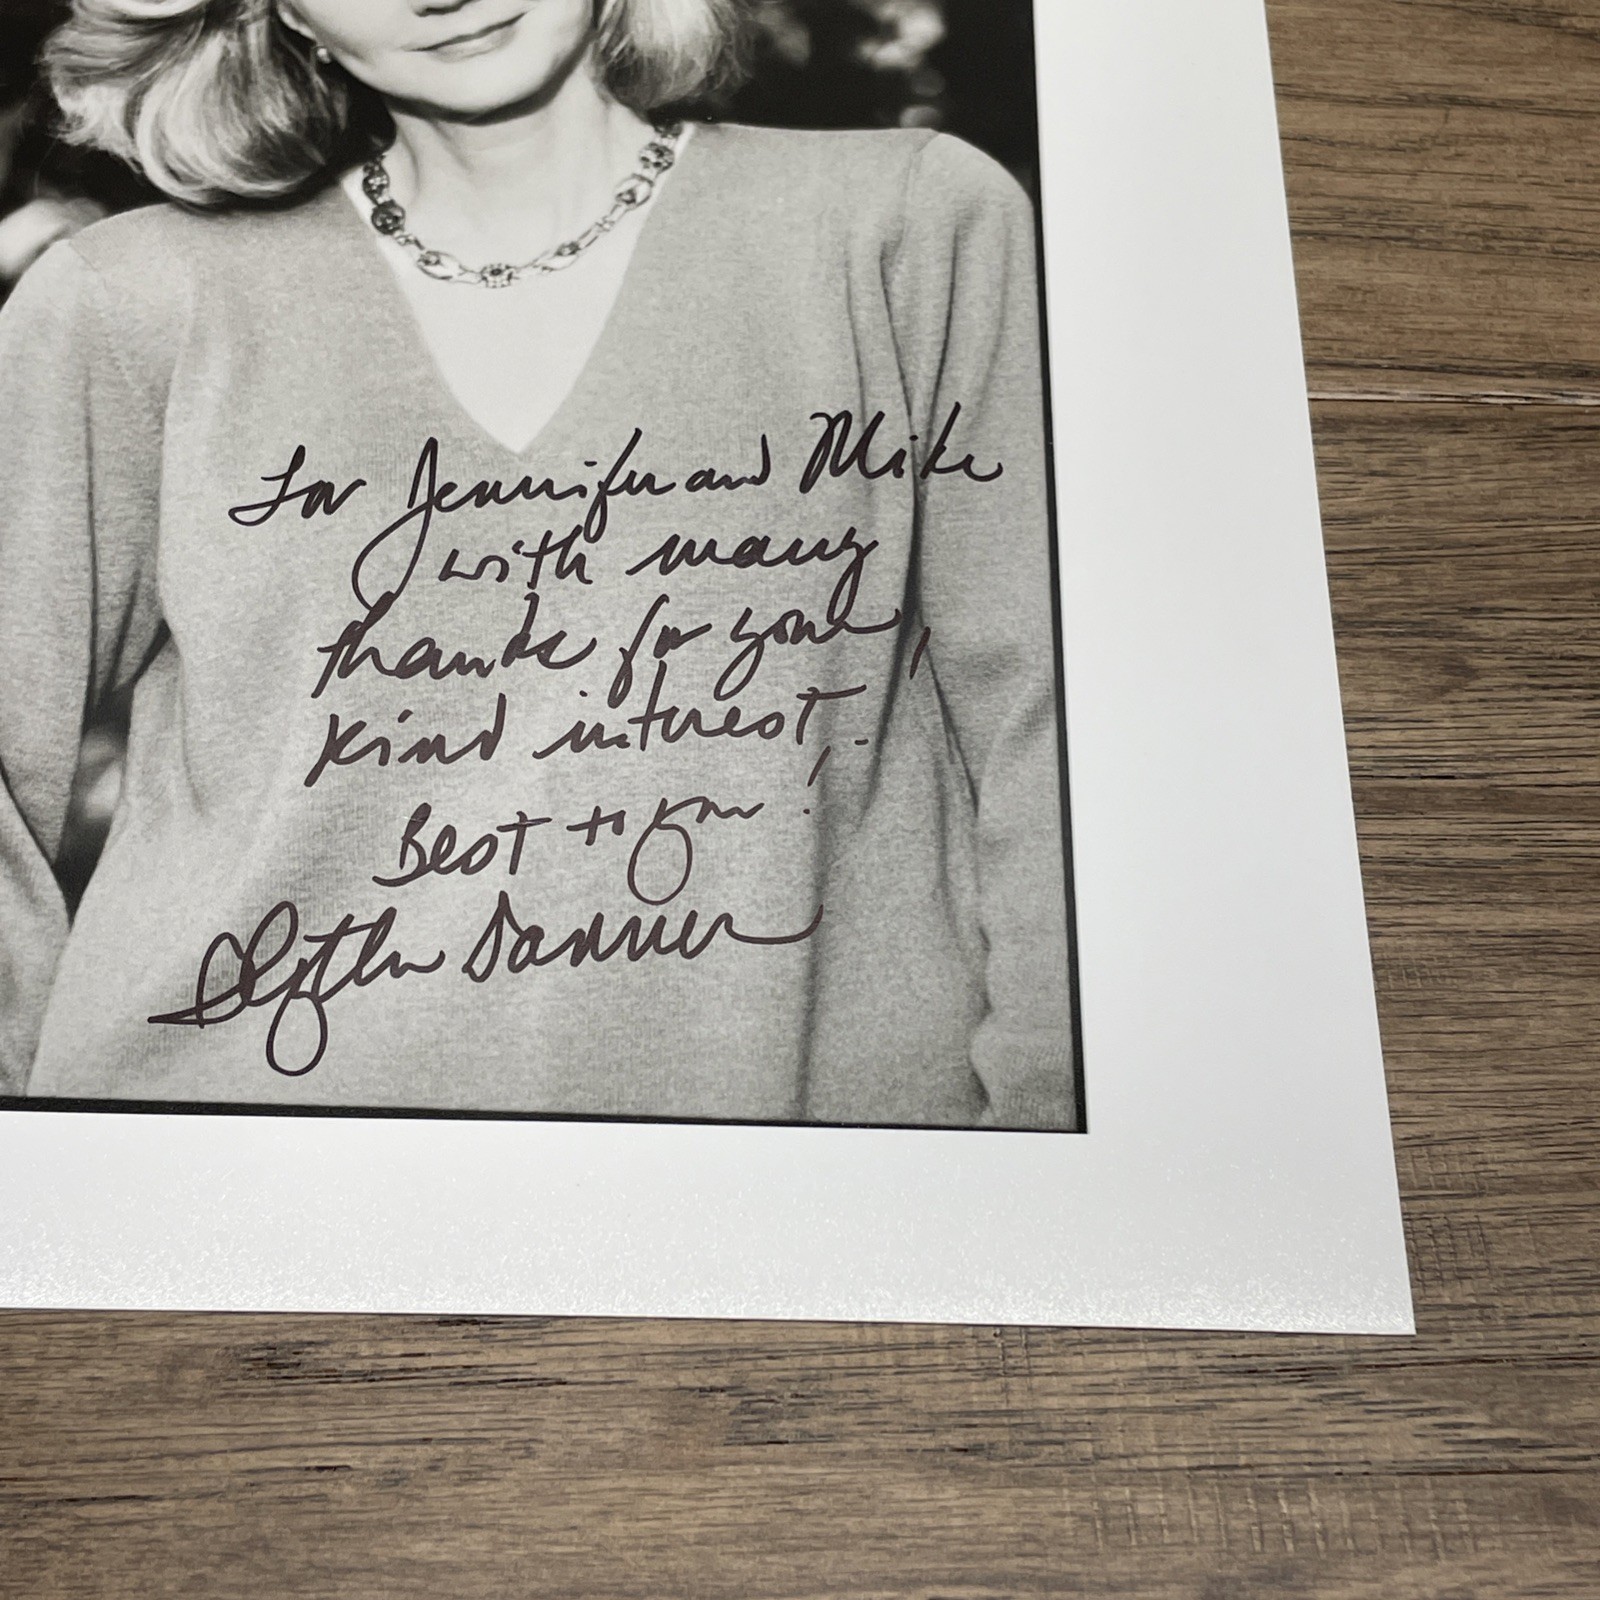 For Jennifer and Mike
with many
thanks for your,
kind interest,.
Best to you!
Blythe Danner